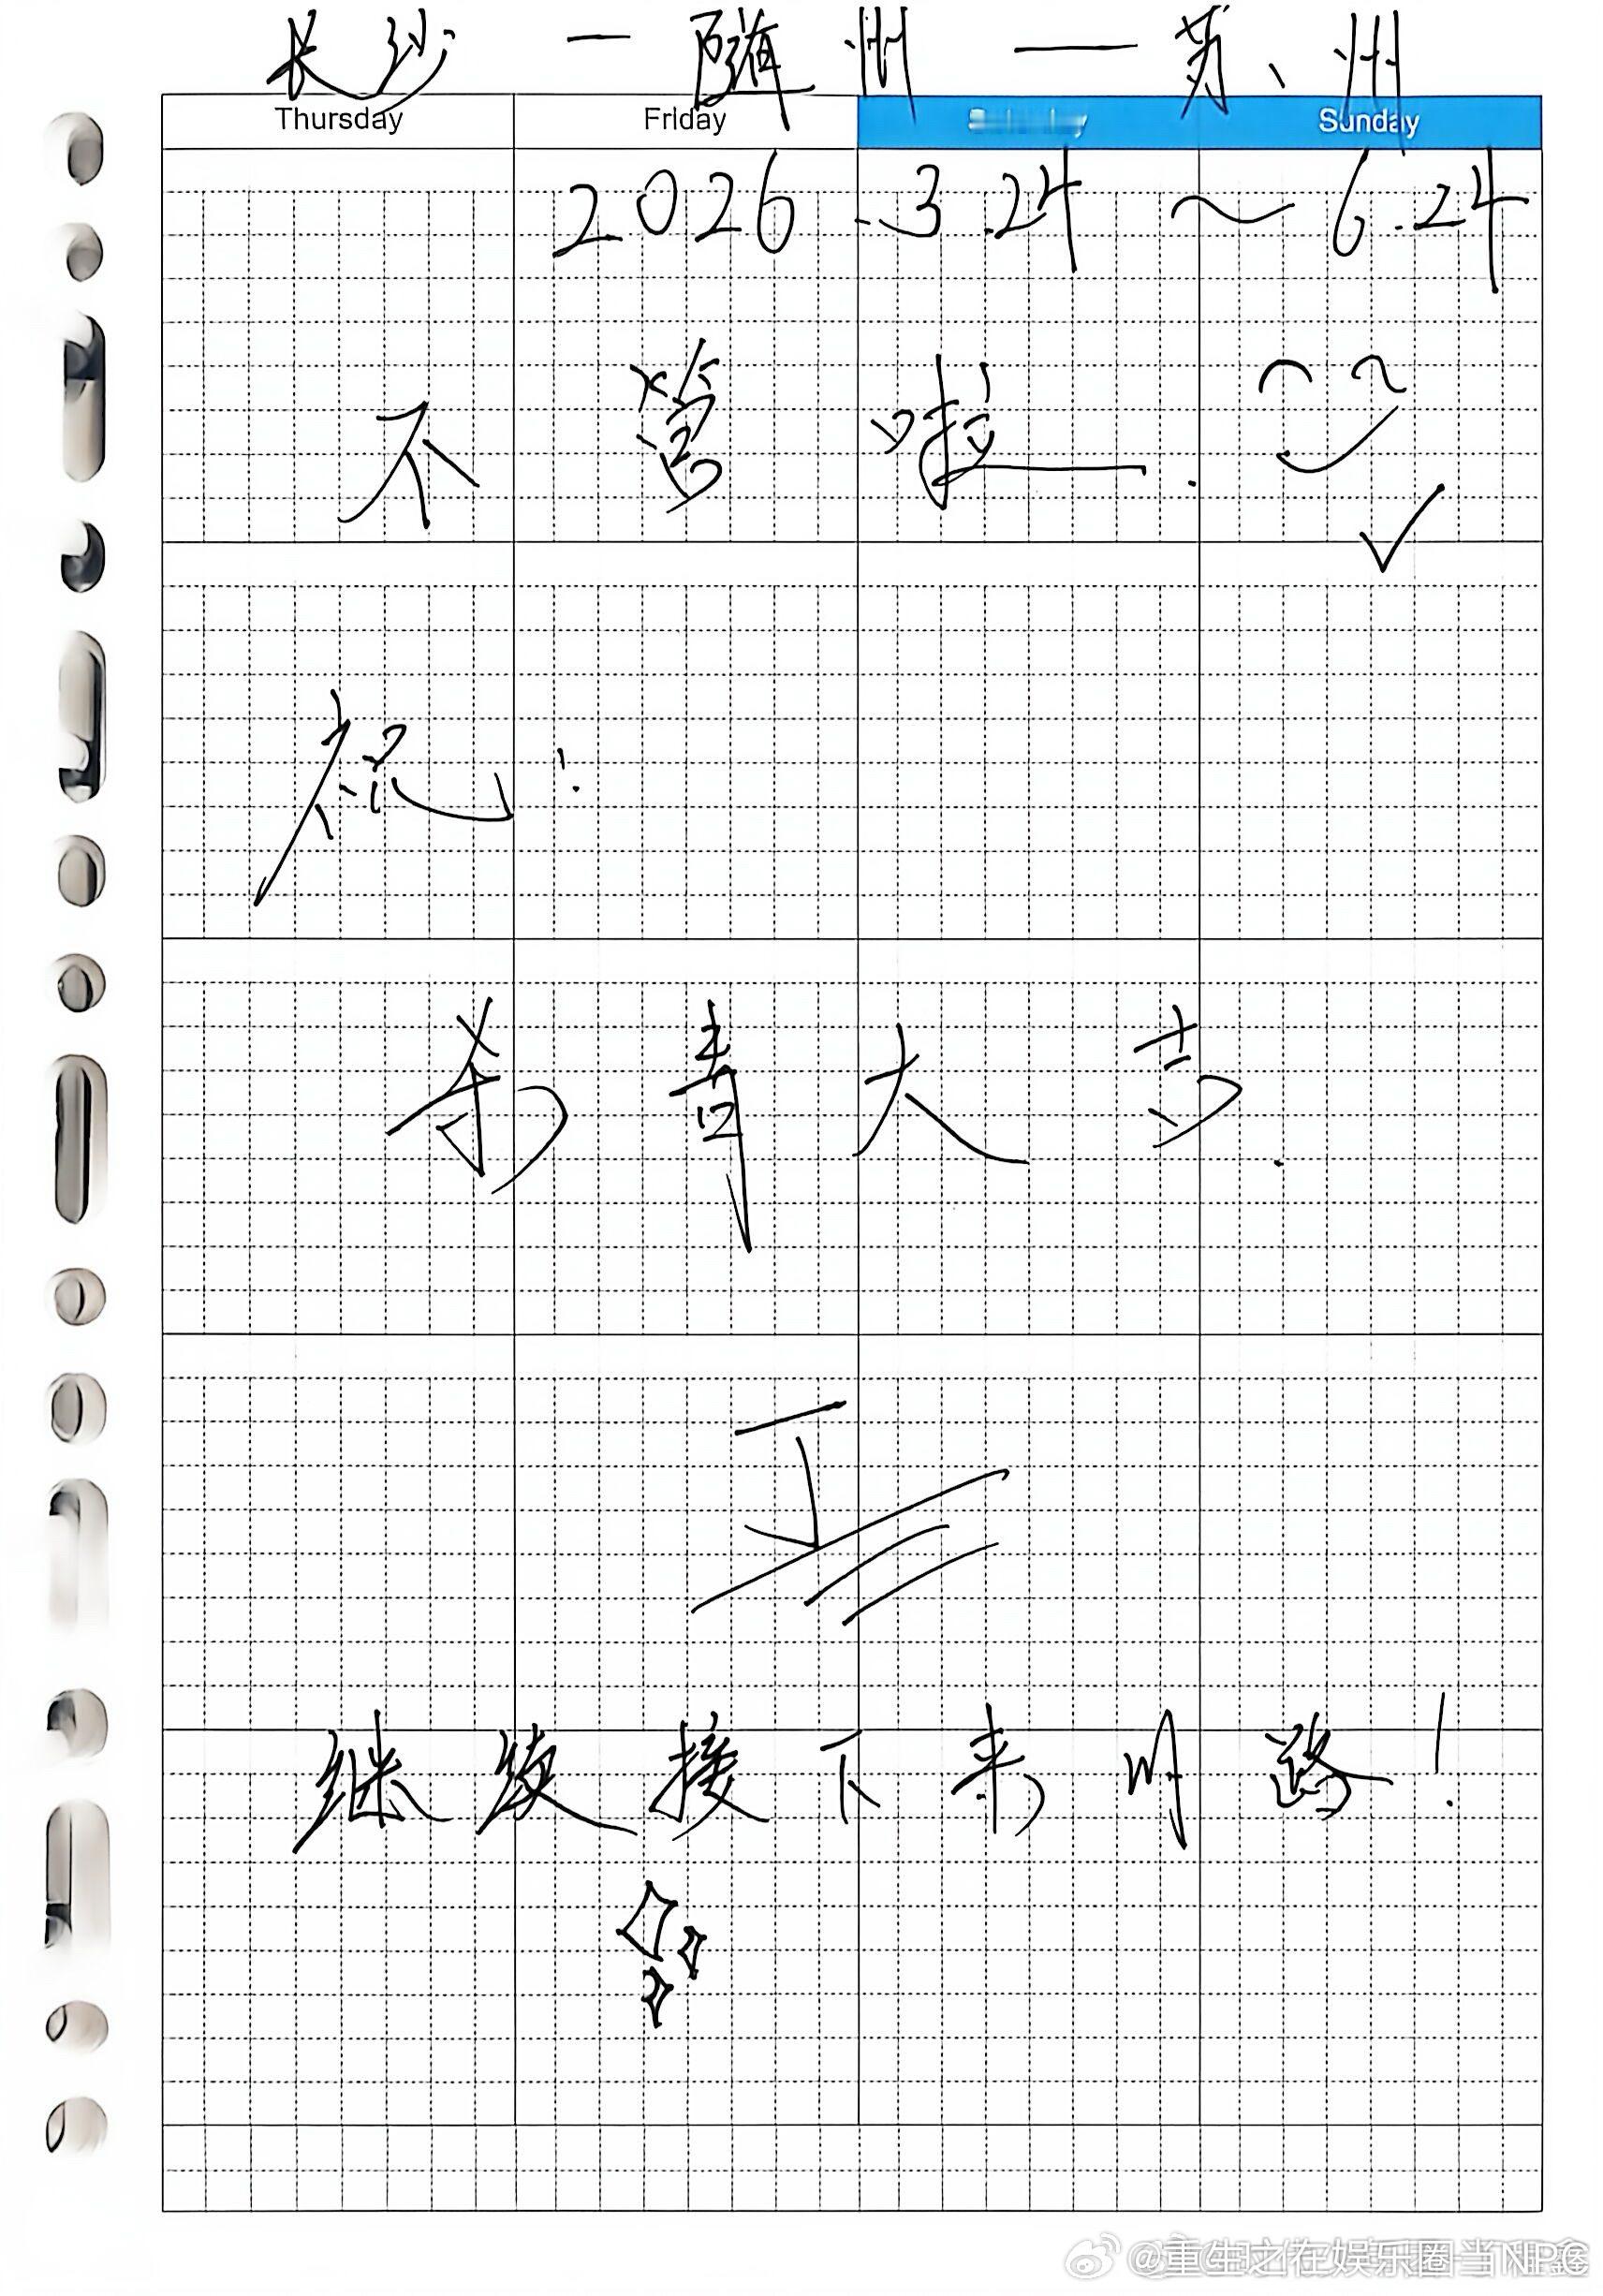 长沙 — 随州 — 苏州
Thursday Friday Sunday
2026.3.24 ~ 6.24
不管啦.
祝:
杀青大吉.
继续接下来的路!
@重生之在娱乐圈当NPC